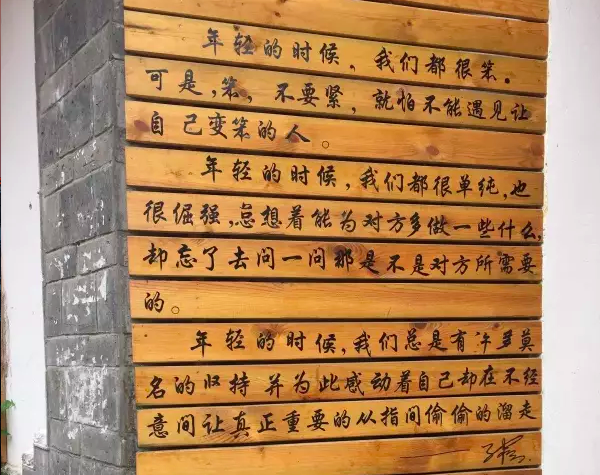 年轻的时候，我们都很笨。
可是，笨，不要紧，就怕不能遇见让
自己变笨的人。
年轻的时候，我们都很单纯，也
很倔强，总想着能为对方多做一些什么，
却忘了去问一问那是不是对方所需要
的。
年轻的时候，我们总是有许多莫
名的坚持并为此感动着自己却在不经
意间让真正重要的从指间偷偷的溜走